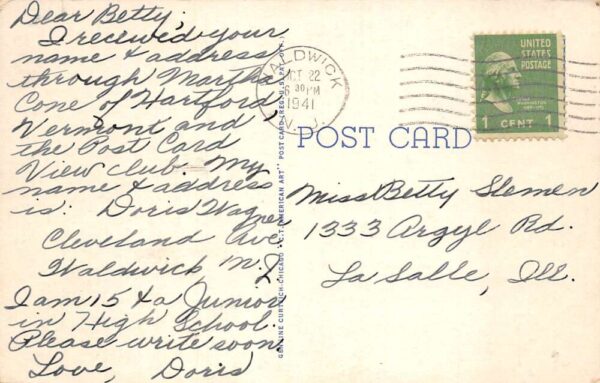 Dear Betty,
I received your
name & address
through Martha
Cone of Hartford
Vermont and
the Post Card
View club. My
name & address
is: Doris Wagner
Cleveland Ave.
Waldwick N.J.
I am 15 & a Junior
in High School.
Please write soon
Love, Doris
GENUINE CURTEICH-CHICAGO "C.T. AMERICAN ART" POST CARD (REG. U.S. PAT. OFF.)
WALDWICK
OCT 22
6 30 PM
1941
N. J.
UNITED
STATES
POSTAGE
WASHINGTON
1 CENT 1
POST CARD
Miss Betty Slemen
1333 Argyl Rd.
La Salle, Ill.